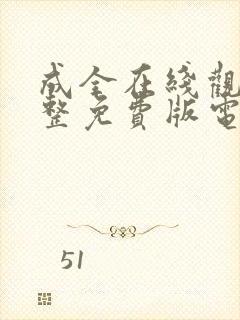 成全在线觀
整免費版電
51